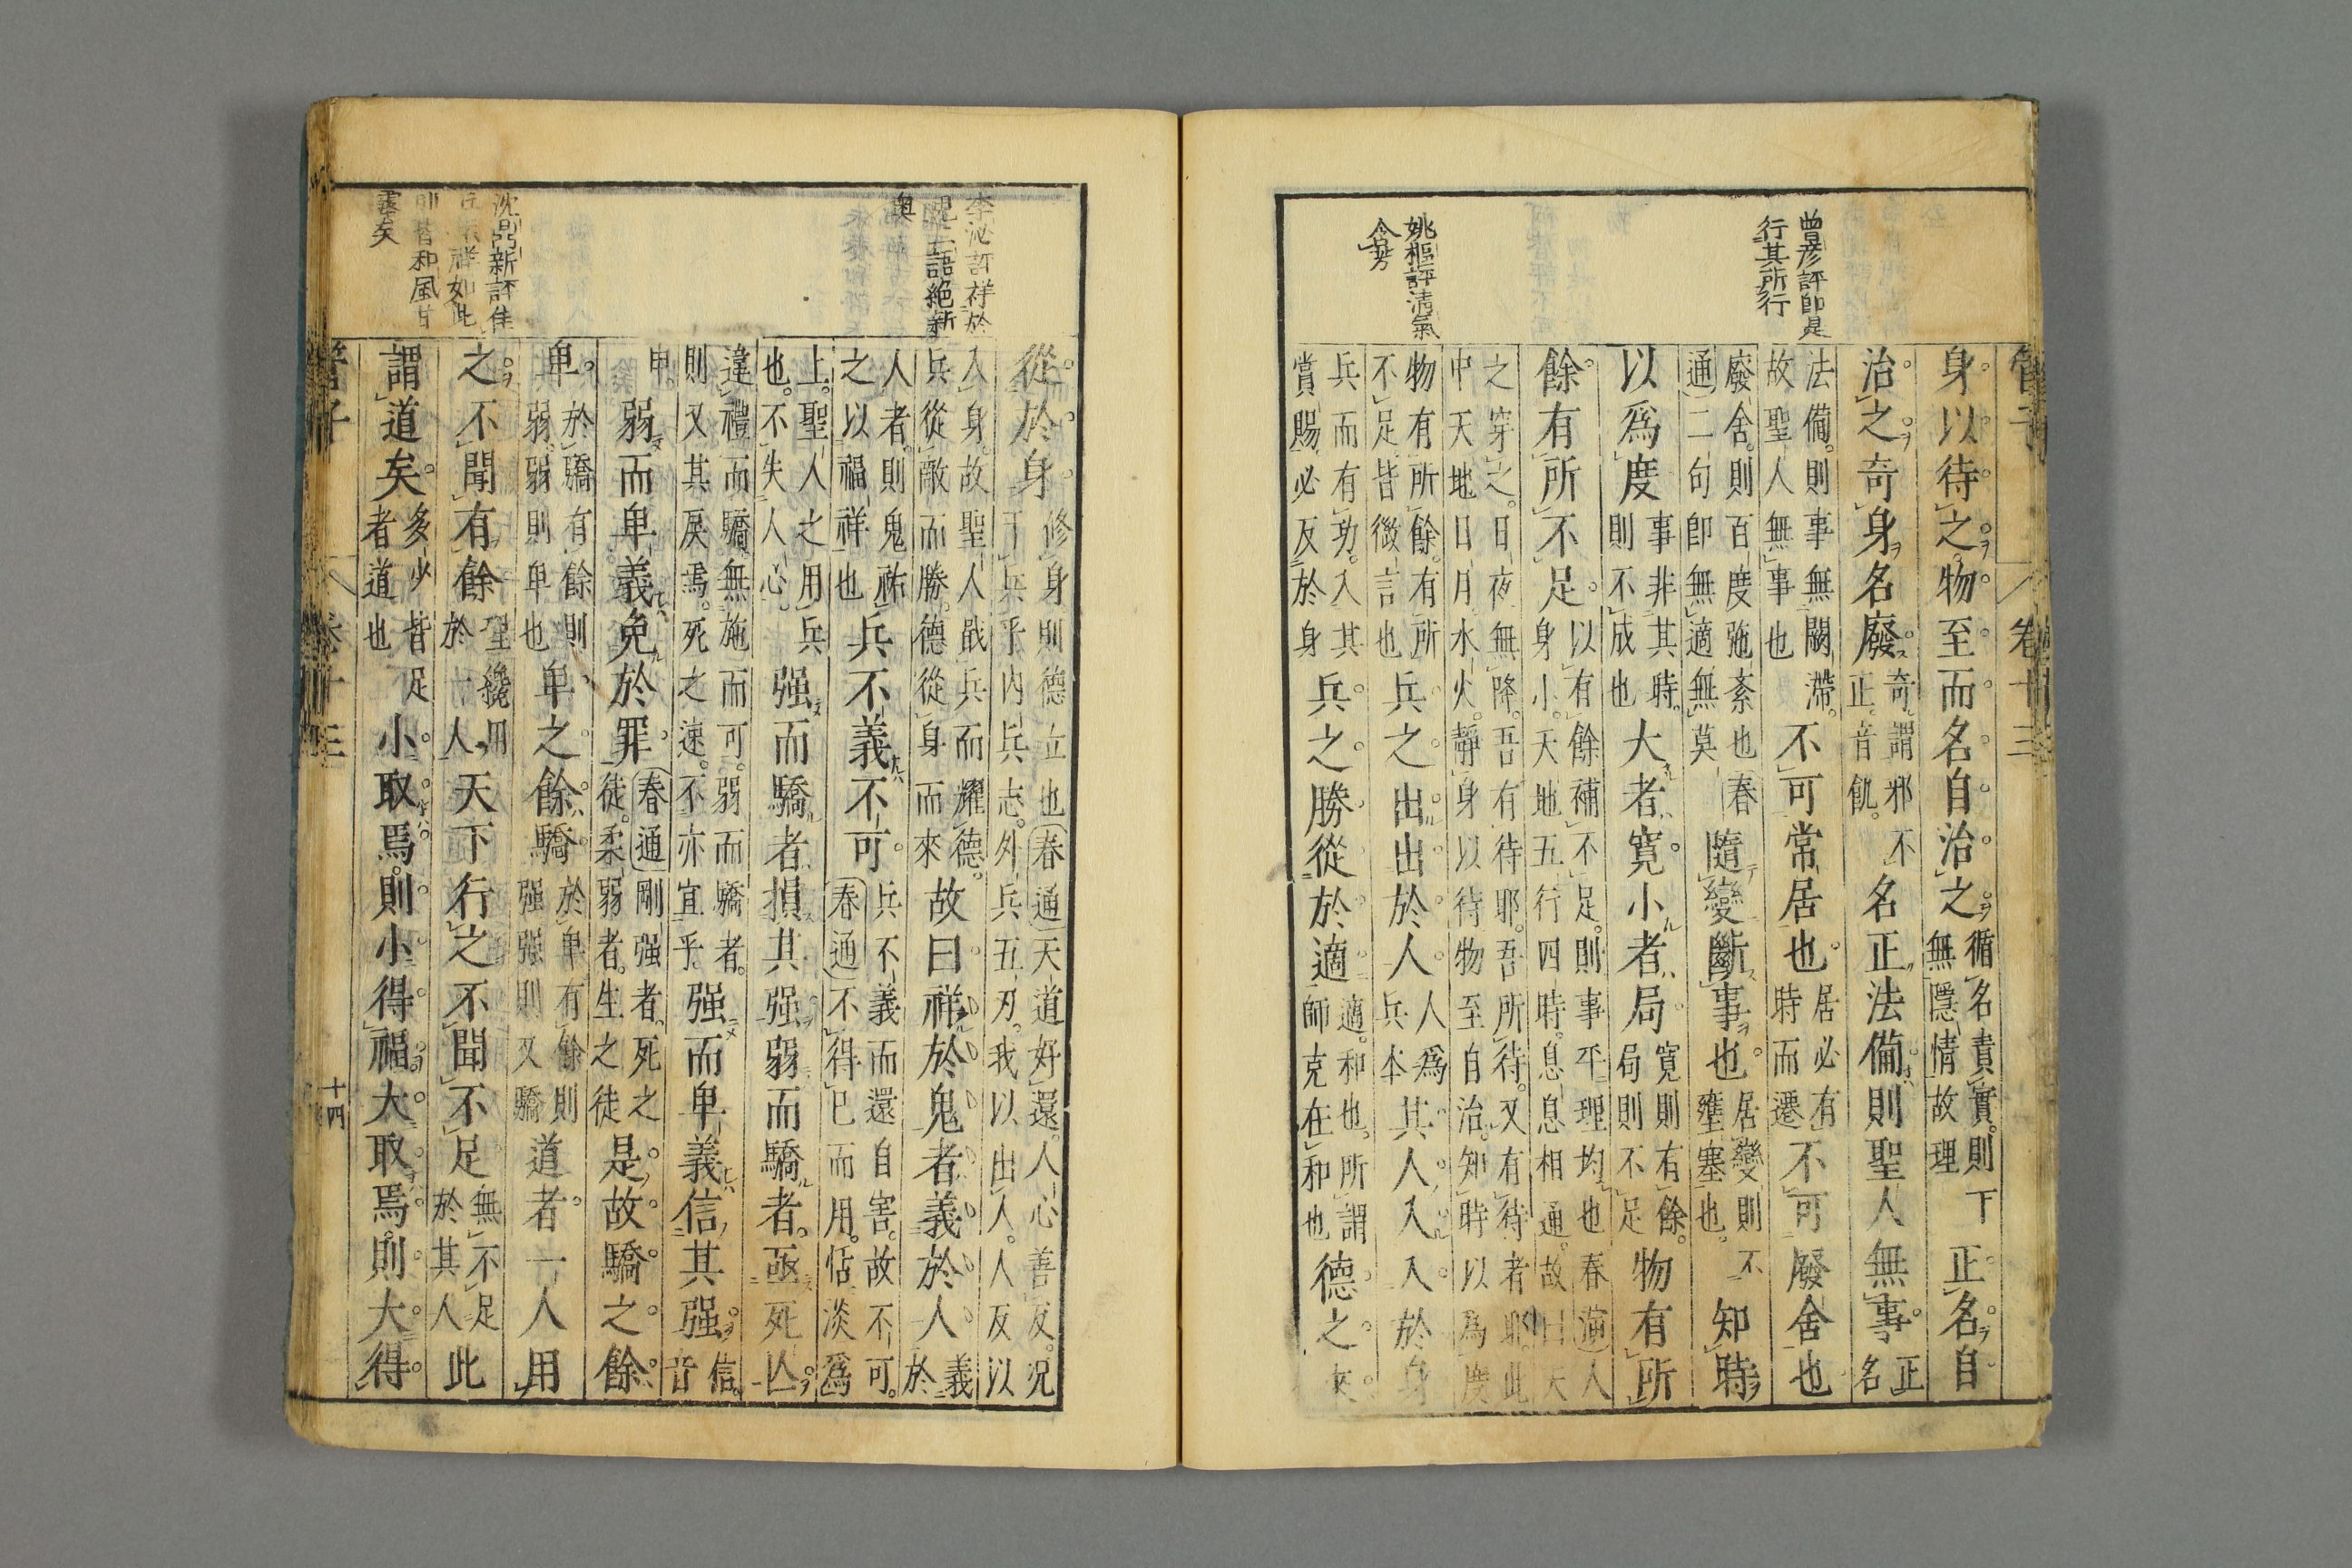 管子
卷十三
曾彥評即是
行其所行
姚樞評清氣
令芳
身以待之物至而名自治之循名責實則
無隱情故理下正名自
治之奇身名廢奇謂邪不
正音飢名正法備則聖人無事正
名
法備則事無闕滯
故聖人無事也不可常居也居必有
時而遷不可廢舍也
廢舍則百度弛紊也春
通二句即無適無莫隨變斷事也居變則不
壅塞也知時
以爲度事非其時
則不成也大者寬小者局寬則有餘
局則不足物有所
餘有所不足以有餘補不足則事平理均也春演人
身小天地五行四時息息相通故曰天
之穿之日夜無降吾有待耶吾所待又有待者耶此
中天地日月水火靜身以待物至自治知時以爲度
物有所餘有所
不足皆微言也兵之出出於人人爲
兵本其人入入於身
兵而有功入其
賞賜必反於身兵之勝從於適適和也所謂
師克在和也德之來
李泌評祥於
鬼二語絕新
奥
沈鼎新評佳
祥如此
則皆和風甘
露矣
從於身修身則德立也春通天道好還人心善反況
于兵乎內兵志外兵五刃我以出人人反以
入身故聖人戢兵而耀德
兵從敵而勝德從身而來故曰祥於鬼者義於人義
於
人者則鬼祐
之以福祥也兵不義不可兵不義而還自害故不可
春通不得已而用恬淡爲
上聖人之用兵
也不失人心强而驕者損其强弱而驕者亟死亡
違禮而驕無施而可弱而驕者
則又其戾焉死之速不亦宜乎强而卑義信其强信
音
申弱而卑義免於罪春通剛强者死之
徒柔弱者生之徒是故驕之餘
卑於驕有餘則
弱弱則卑也卑之餘驕於卑有餘則
强强則又驕道者一人用
之不聞有餘聖纔用
於一人天下行之不聞不足無不足
於其人此
謂道矣多少皆足
者道也小取焉則小得福大取焉則大得
管子
卷十三
十四